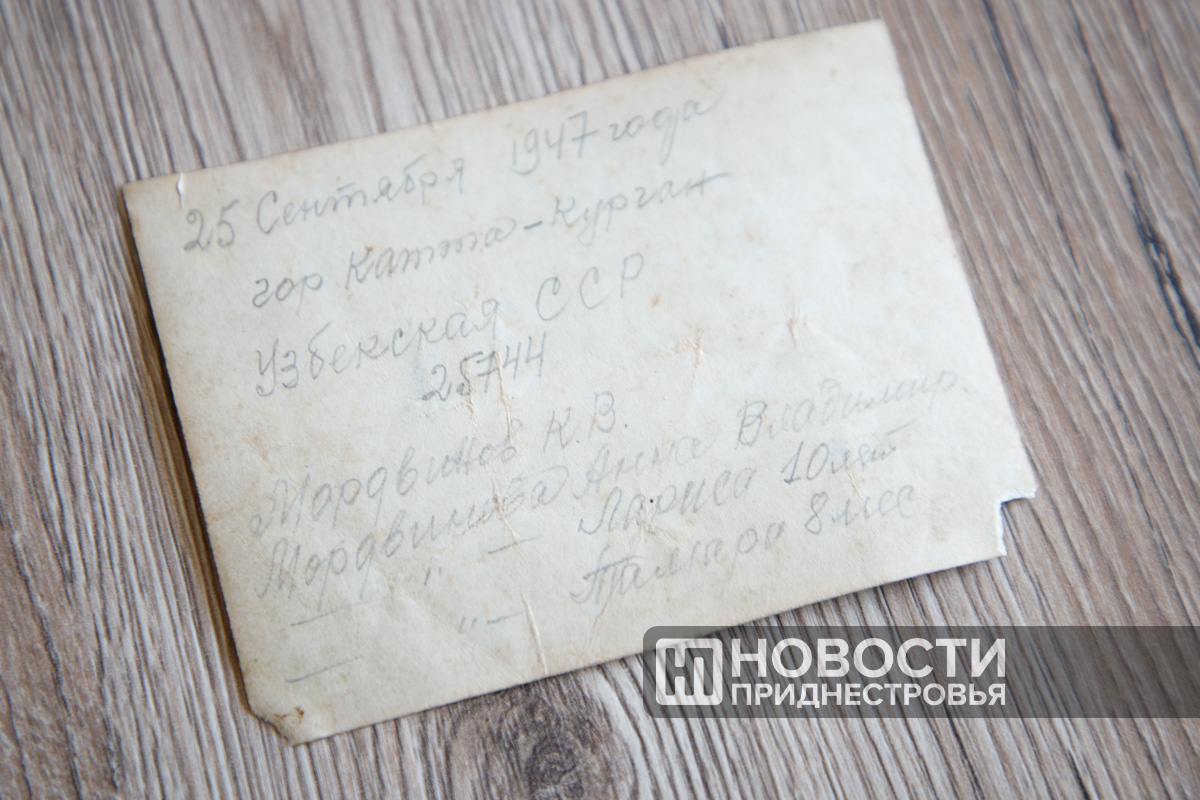 25 Сентября 1947 года
гор Катта-Курган
Узбекская ССР
25744
Мордвинов К.В.
Мордвинова Анна Владимир.
— „ — Лариса 10 лет
— „ — Тамара 8 мес
НОВОСТИ
ПРИДНЕСТРОВЬЯ